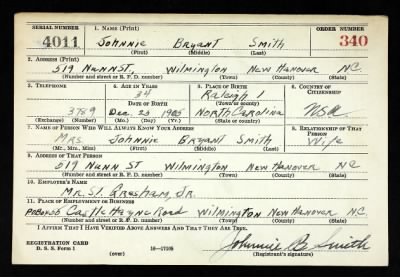 SERIAL NUMBER 1. NAME (Print) ORDER NUMBER
4011 Johnnie Bryant Smith 340
(First) (Middle) (Last)
2. ADDRESS (Print)
519 Nunn St. Wilmington New Hanover N.C.
(Number and street or R. F. D. number) (Town) (County) (State)
3. TELEPHONE 4. AGE IN YEARS 5. PLACE OF BIRTH 6. COUNTRY OF CITIZENSHIP
34 Raleigh
DATE OF BIRTH (Town or county)
3789 Dec. 23 1905 North Carolina USA
(Exchange) (Number) (Mo.) (Day) (Yr.) (State or country)
7. NAME OF PERSON WHO WILL ALWAYS KNOW YOUR ADDRESS 8. RELATIONSHIP OF THAT PERSON
Mrs. Johnnie Bryant Smith Wife
(Mr., Mrs., Miss) (First) (Middle) (Last)
9. ADDRESS OF THAT PERSON
519 Nunn St Wilmington New Hanover NC
(Number and street or R. F. D. number) (Town) (County) (State)
10. EMPLOYER'S NAME
Mr. Gresham, Jr.
11. PLACE OF EMPLOYMENT OR BUSINESS
Castle Hayne Road Wilmington New Hanover N.C.
(Number and street or R. F. D. number) (Town) (County) (State)
I AFFIRM THAT I HAVE VERIFIED ABOVE ANSWERS AND THAT THEY ARE TRUE.
REGISTRATION CARD
D. S. S. Form 1 16—17105 Johnnie B Smith
(over) (Registrant's signature)